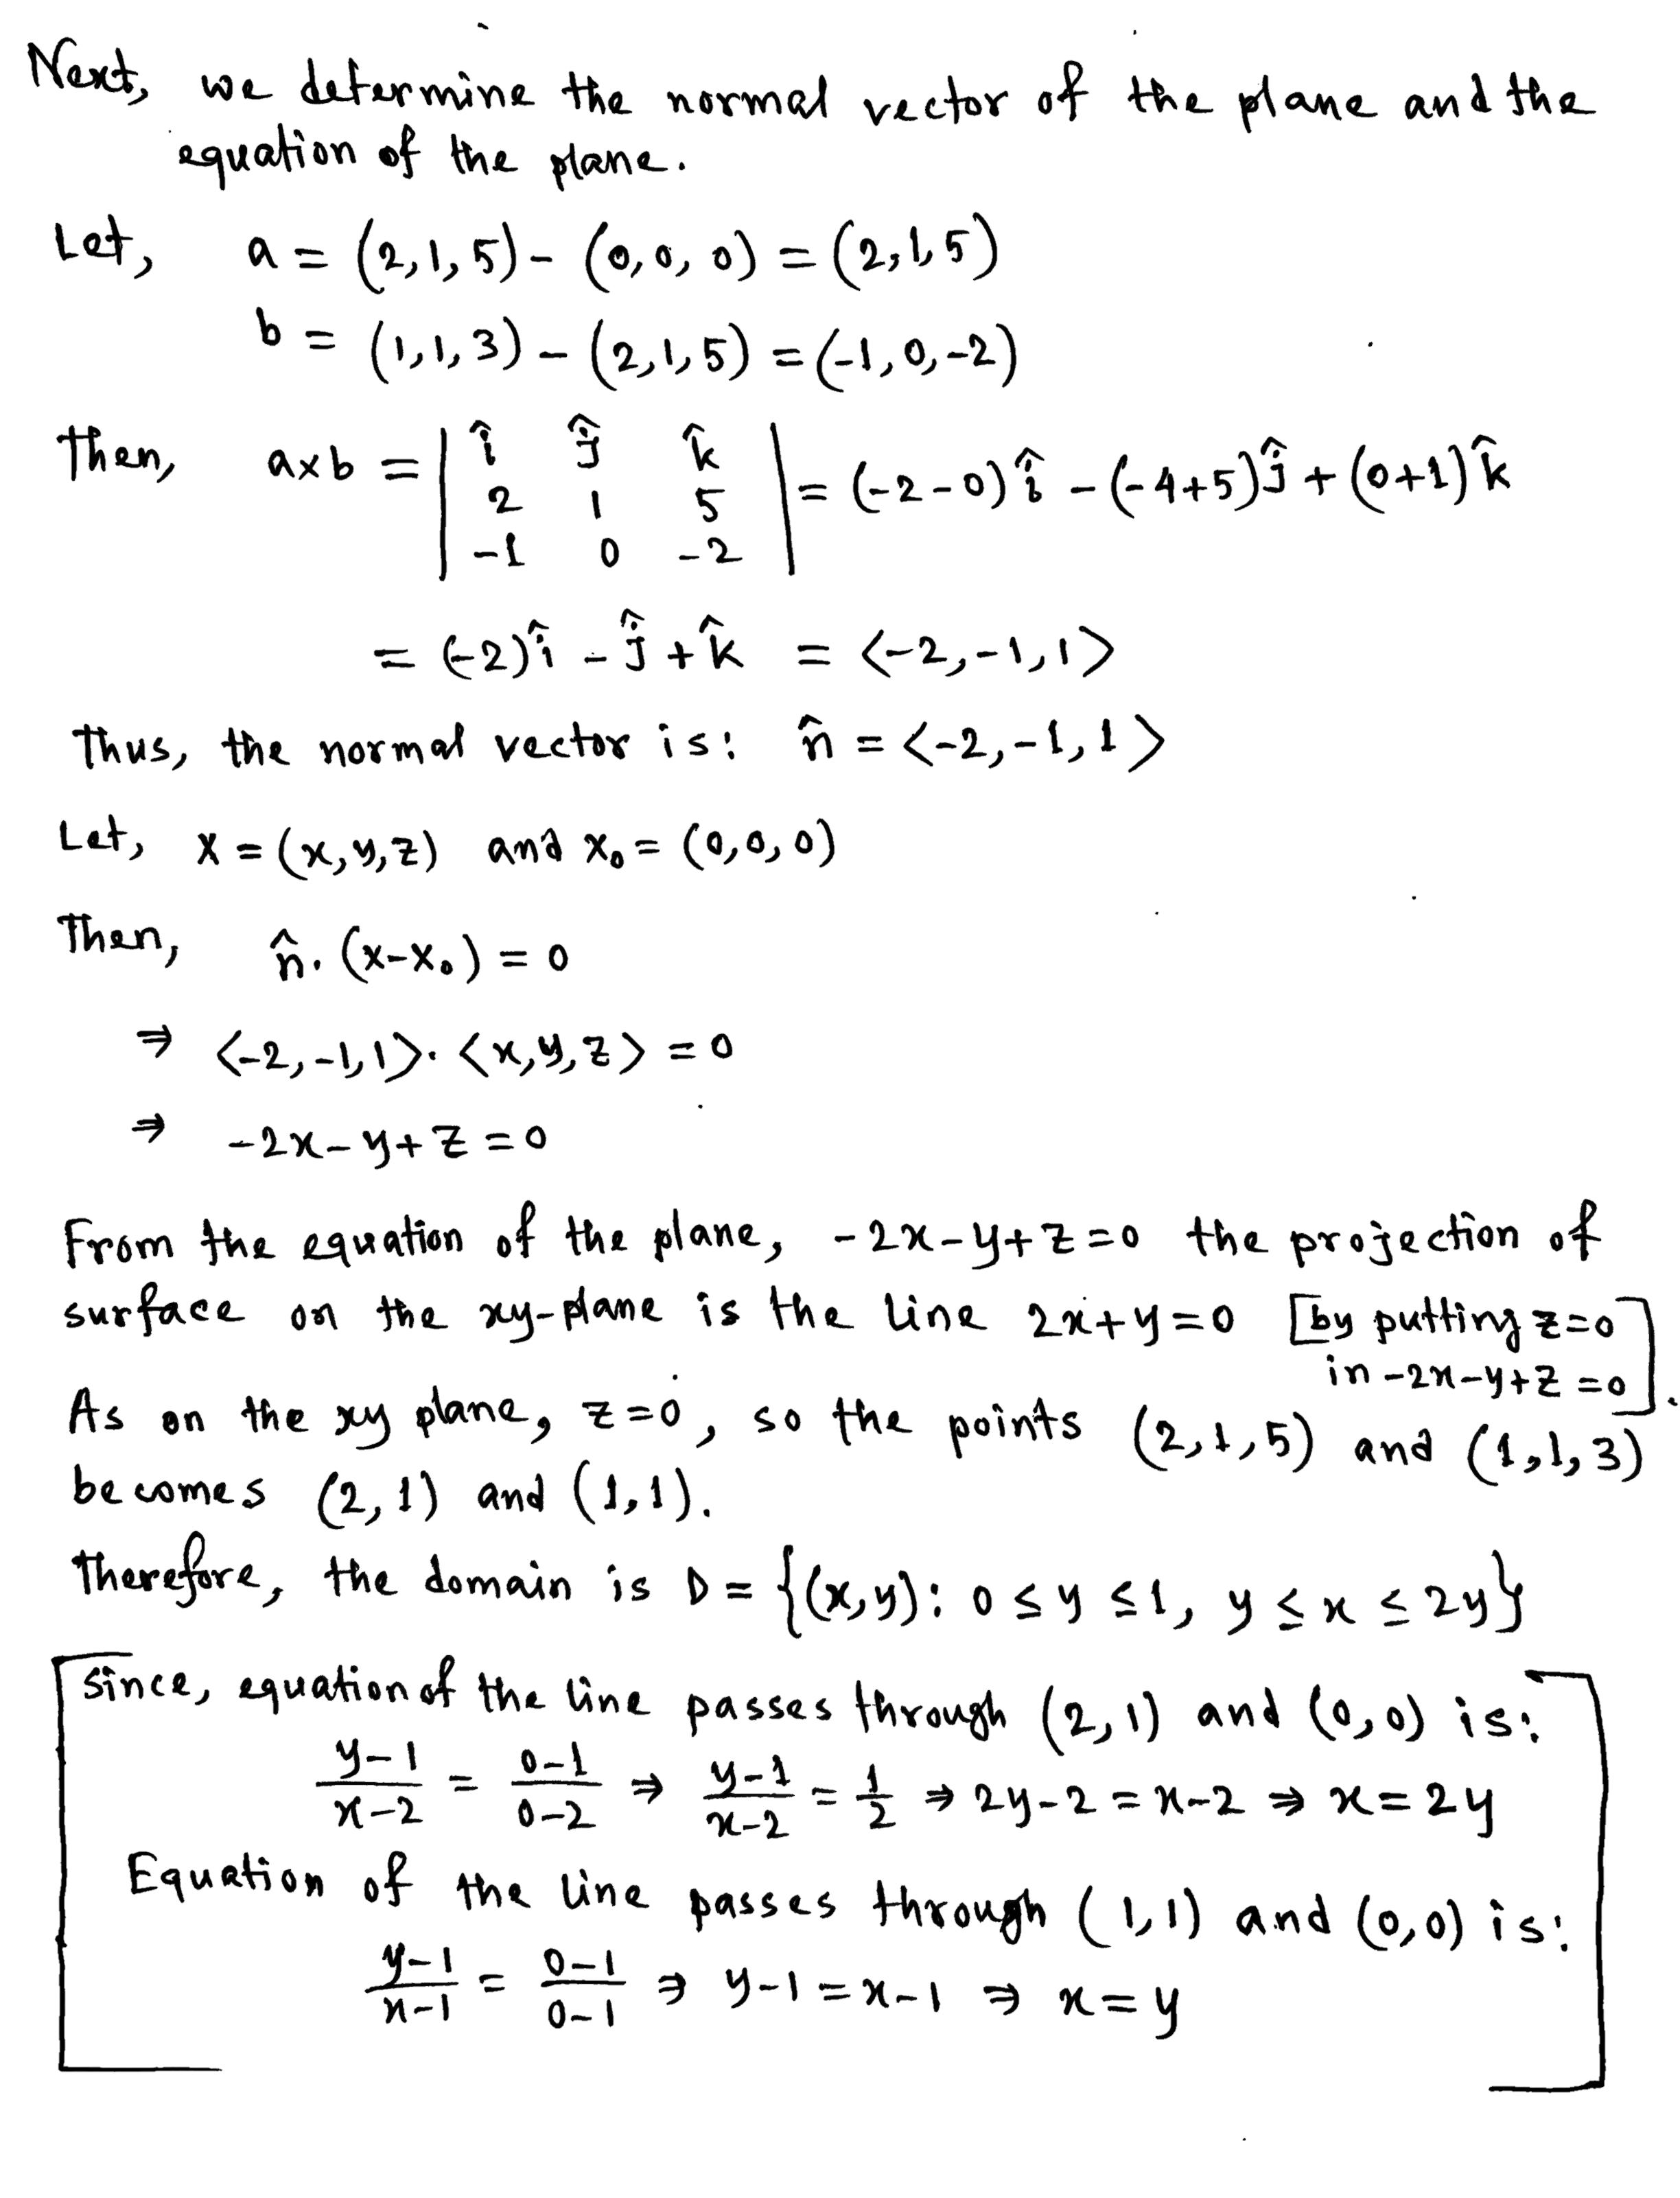 Next, we determine the normal vector of the plane and the
equation of the plane.
Let, a = (2,1,5) - (0,0,0) = (2,1,5)
b = (1,1,3) - (2,1,5) = (-1,0,-2)
Then, a×b = | î ĵ k̂ | = (-2-0)î - (-4+5)ĵ + (0+1)k̂
2 1 5
-1 0 -2
= (-2)î - ĵ + k̂ = <-2,-1,1>
Thus, the normal vector is: n̂ = <-2,-1,1>
Let, X = (x,y,z) and X₀ = (0,0,0)
Then, n̂. (X-X₀) = 0
⇒ <-2,-1,1>. <x,y,z> = 0
⇒ -2x-y+z=0
From the equation of the plane, -2x-y+z=0 the projection of
surface on the xy-plane is the line 2x+y=0 [by putting z=0
in -2x-y+z=0].
As on the xy plane, z=0, so the points (2,1,5) and (1,1,3)
becomes (2,1) and (1,1).
Therefore, the domain is D = {(x,y): 0≤y≤1, y≤x≤2y}
[Since, equation of the line passes through (2,1) and (0,0) is:
(y-1)/(x-2) = (0-1)/(0-2) ⇒ (y-1)/(x-2) = 1/2 ⇒ 2y-2=x-2 ⇒ x=2y
Equation of the line passes through (1,1) and (0,0) is:
(y-1)/(x-1) = (0-1)/(0-1) ⇒ y-1=x-1 ⇒ x=y]